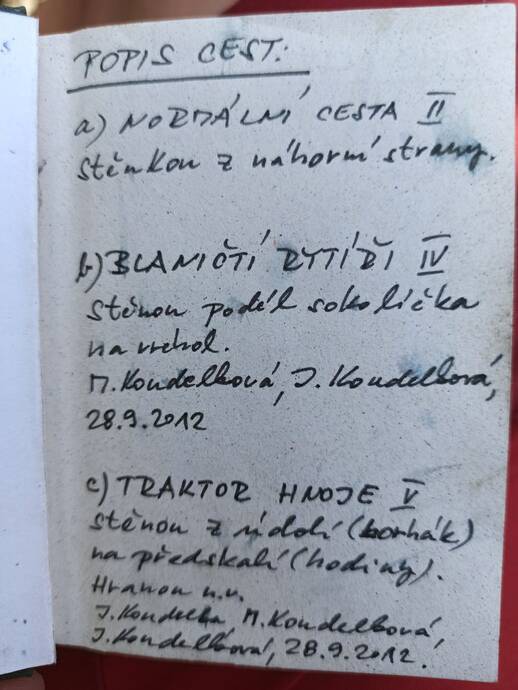 POPIS CEST:
a) NORMÁLNÍ CESTA II
Stěnkou z náhorní strany.
b) BLANIČTÍ RYTÍŘI IV
Stěnou podél sokolíčka
na vrchol.
M. Koudelková, J. Koudelková,
28.9.2012
c) TRAKTOR HNOJE V
Stěnou z údolí (borhák)
na předskalí (hodiny).
Hranou n.v.
J. Koudelka, M. Koudelková,
J. Koudelková, 28.9.2012.